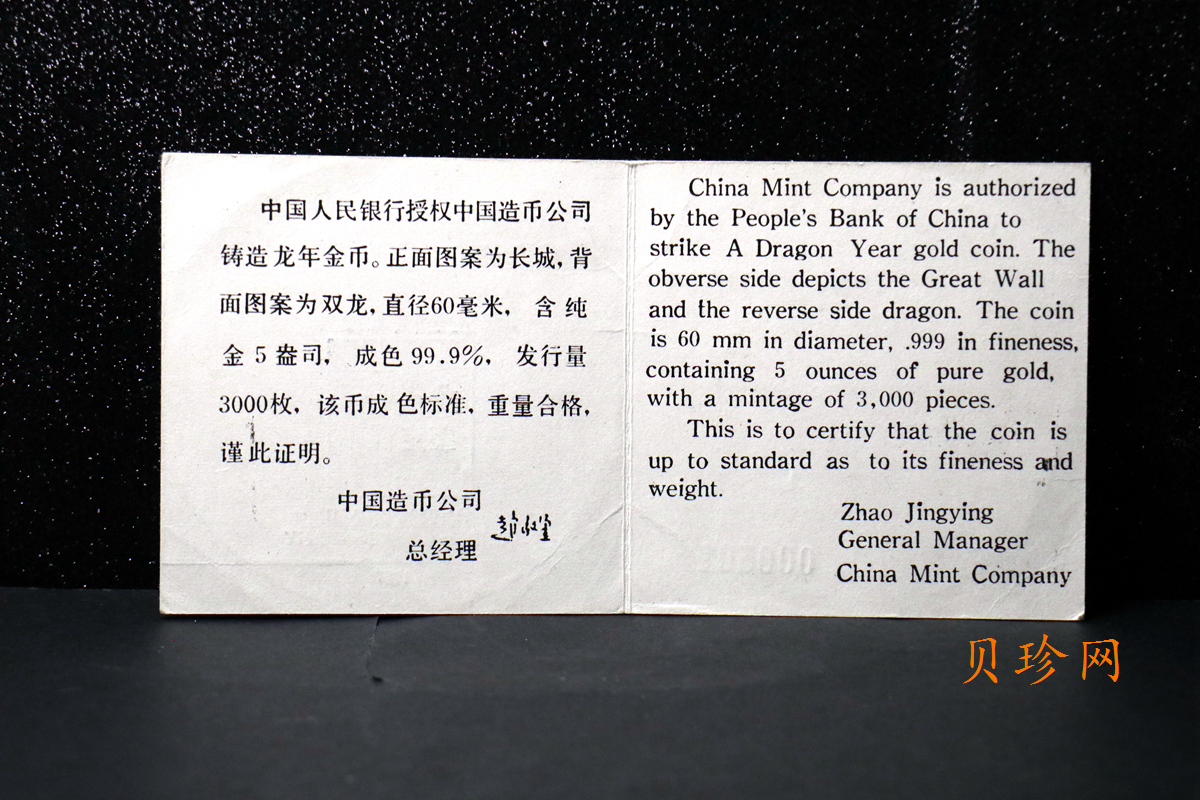 中国人民银行授权中国造币公司
铸造龙年金币。正面图案为长城,背
面图案为双龙,直径60毫米, 含纯
金5盎司, 成色99.9%, 发行量
3000枚, 该币成色标准, 重量合格,
谨此证明。
中国造币公司
总经理
China Mint Company is authorized
by the People's Bank of China to
strike A Dragon Year gold coin. The
obverse side depicts the Great Wall
and the reverse side dragon. The coin
is 60 mm in diameter, .999 in fineness,
containing 5 ounces of pure gold,
with a mintage of 3,000 pieces.
This is to certify that the coin is
up to standard as to its fineness and
weight.
Zhao Jingying
General Manager
China Mint Company
贝珍网